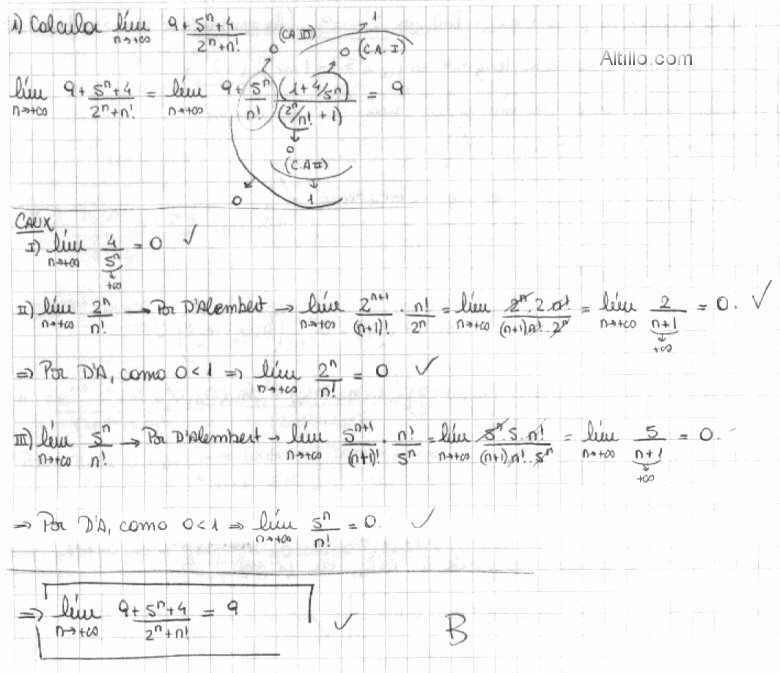 i) Calcular lím n→+∞ 9 + (5ⁿ+4)/(2ⁿ+n!)
Altillo.com
lím n→+∞ 9 + (5ⁿ+4)/(2ⁿ+n!) = lím n→+∞ 9 + 5ⁿ/n! (1 + 4/5ⁿ)/(2ⁿ/n! + 1) = 9
0 (C.A. III) 1 0 (C.A. I)
0
(C.A II)
0 1
CAUX
I) lím n→+∞ 4/5ⁿ = 0 ✓
+∞
II) lím n→+∞ 2ⁿ/n! → Por D'Alembert → lím n→+∞ 2ⁿ⁺¹/(n+1)! · n!/2ⁿ = lím n→+∞ 2ⁿ.2.n!/(n+1)n!.2ⁿ = lím n→+∞ 2/(n+1) = 0. ✓
+∞
⇒ Por D'A, como 0<1 ⇒ lím n→+∞ 2ⁿ/n! = 0 ✓
III) lím n→+∞ 5ⁿ/n! → Por D'Alembert → lím n→+∞ 5ⁿ⁺¹/(n+1)! · n!/5ⁿ = lím n→+∞ 5ⁿ.5.n!/(n+1)n!.5ⁿ = lím n→+∞ 5/(n+1) = 0.
+∞
⇒ Por D'A, como 0<1 ⇒ lím n→+∞ 5ⁿ/n! = 0. ✓
⇒ lím n→+∞ 9 + (5ⁿ+4)/(2ⁿ+n!) = 9 ✓ B